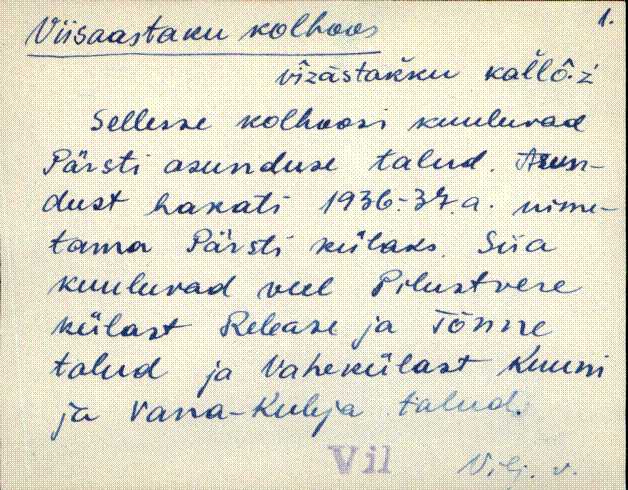 1.
Viisaastaku kolhoos
Sellesse kolhoosi kuuluvad
Pärsti asunduse talud. Asun-
dust hakati 1936.-37.a. nime-
tama Pärsti külaks. Siia
kuuluvad veel Pilustvere
külast Release ja Tõnne
talud ja Vahekülast Kuuni
ja Vana-Kubja talud.
Vil
Vilj. v.